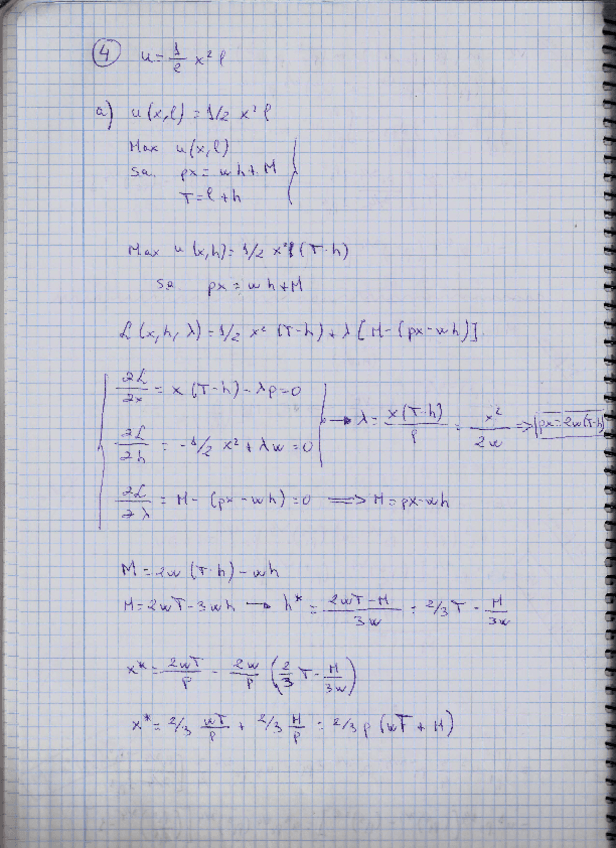 ④ u = 1/2 x² l
a) u(x,l) = 1/2 x² l
Max u(x,l)
sa. px = wh + M
T = l + h
Max u(x,h) = 1/2 x² (T-h)
sa px = wh + M
L(x, h, λ) = 1/2 x² (T-h) + λ [M - (px - wh)]
∂L/∂x = x (T-h) - λp = 0
∂L/∂h = -1/2 x² + λw = 0
→ λ = x(T-h)/p = x²/2w ⇒ px = 2w(T-h)
∂L/∂λ = M - (px - wh) = 0 ⇒ M = px - wh
M = 2w (T-h) - wh
M = 2wT - 3wh → h* = (2wT - M)/3w = 2/3 T - M/3w
x* = 2wT/p - 2w/p (2/3 T - M/3w)
x* = 2/3 wT/p + 2/3 M/p = 2/3p (wT + M)